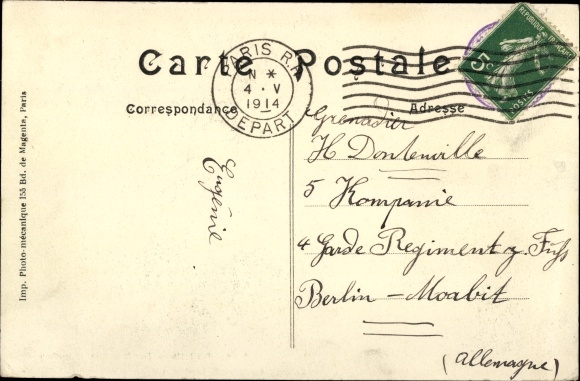 Carte Postale
PARIS R.P.
N *
4 • V
1914
DEPART
RÉPUBLIQUE FRANÇAISE
5c
POSTES
Correspondance
Adresse
Eugénie
Grenadier
H Dontenville
5 Kompanie
4 Garde Regiment z. Fuss
Berlin - Moabit
(Allemagne)
Imp. Photo-mécanique 155 Bd. de Magenta, Paris